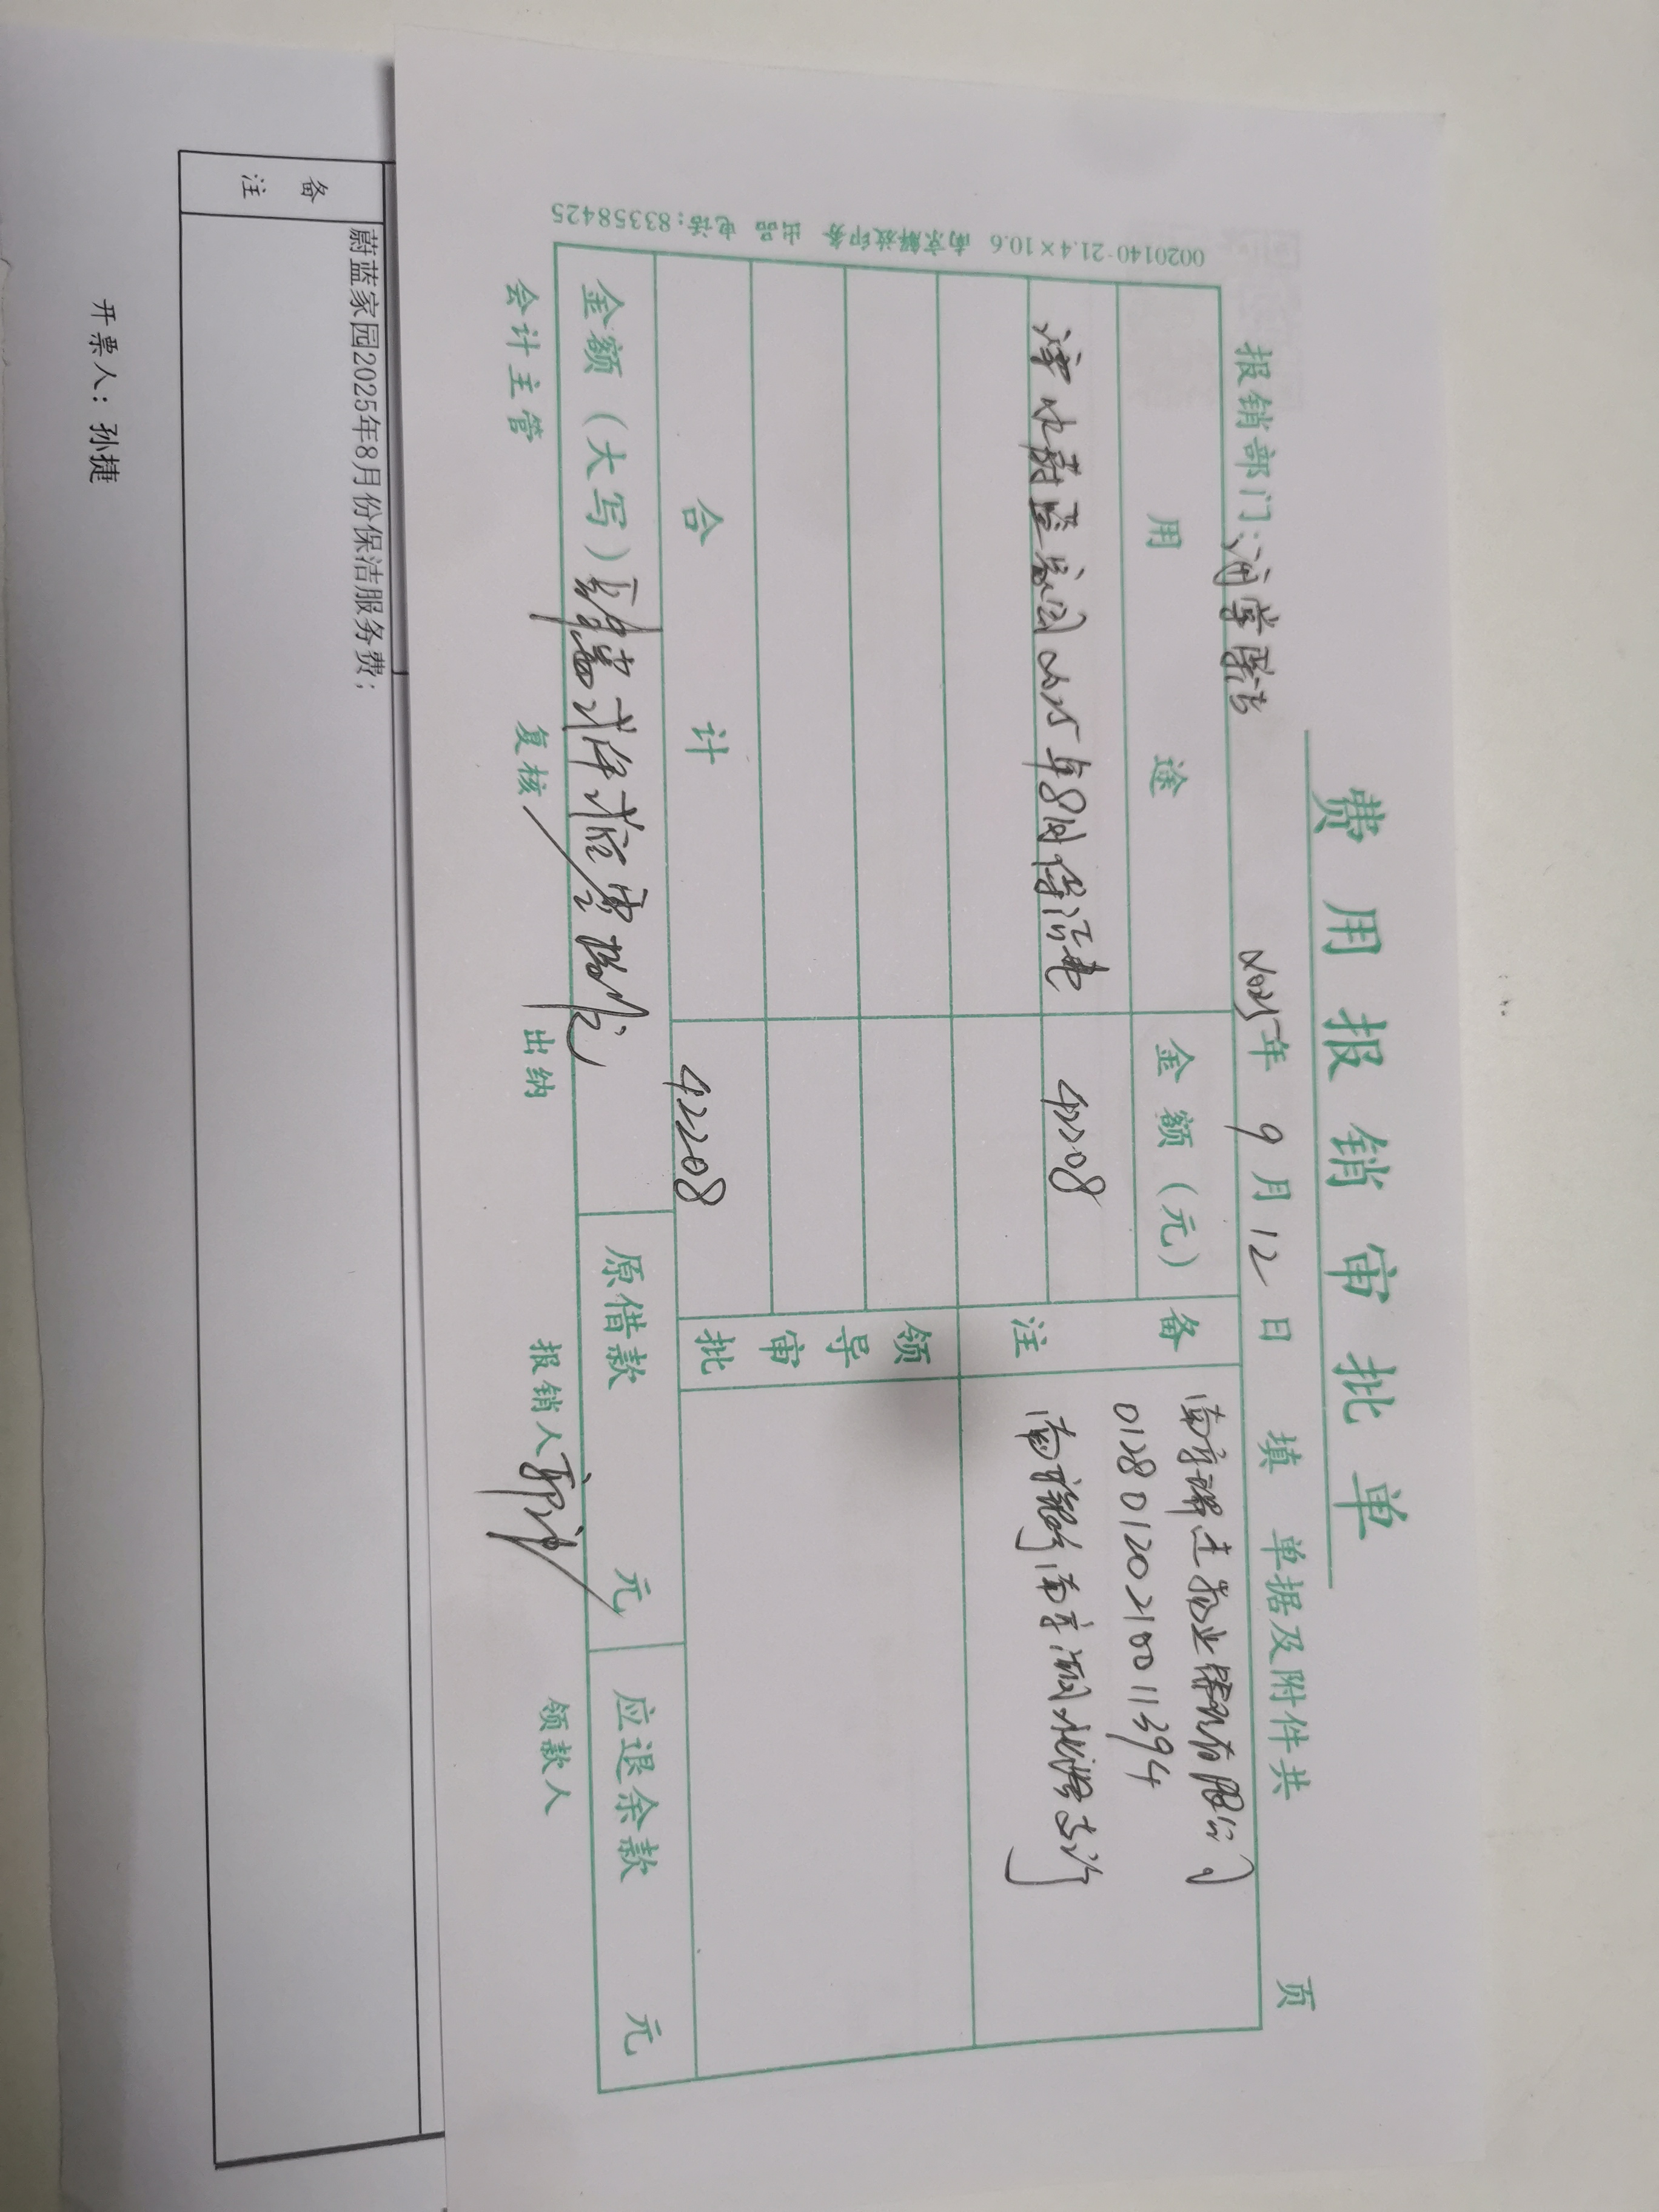 费用报销审批单
报销部门:
2025年 9月12日 填 单据及附件共 页
用途 金额(元) 备注
蔚蓝家园2025年8月份保洁费 42208
南京 物业 有限公司
01280120210011394
南京银行南京 支行
领导审批
合计 42208
金额(大写) 肆万贰仟贰佰零捌元 原借款 元 应退余款 元
会计主管 复核 出纳 报销人 领款人
0020140-21.4×10.6 南京解放印务 出品 电话:83358425
备注
蔚蓝家园2025年8月份保洁服务费;
开票人: 孙捷